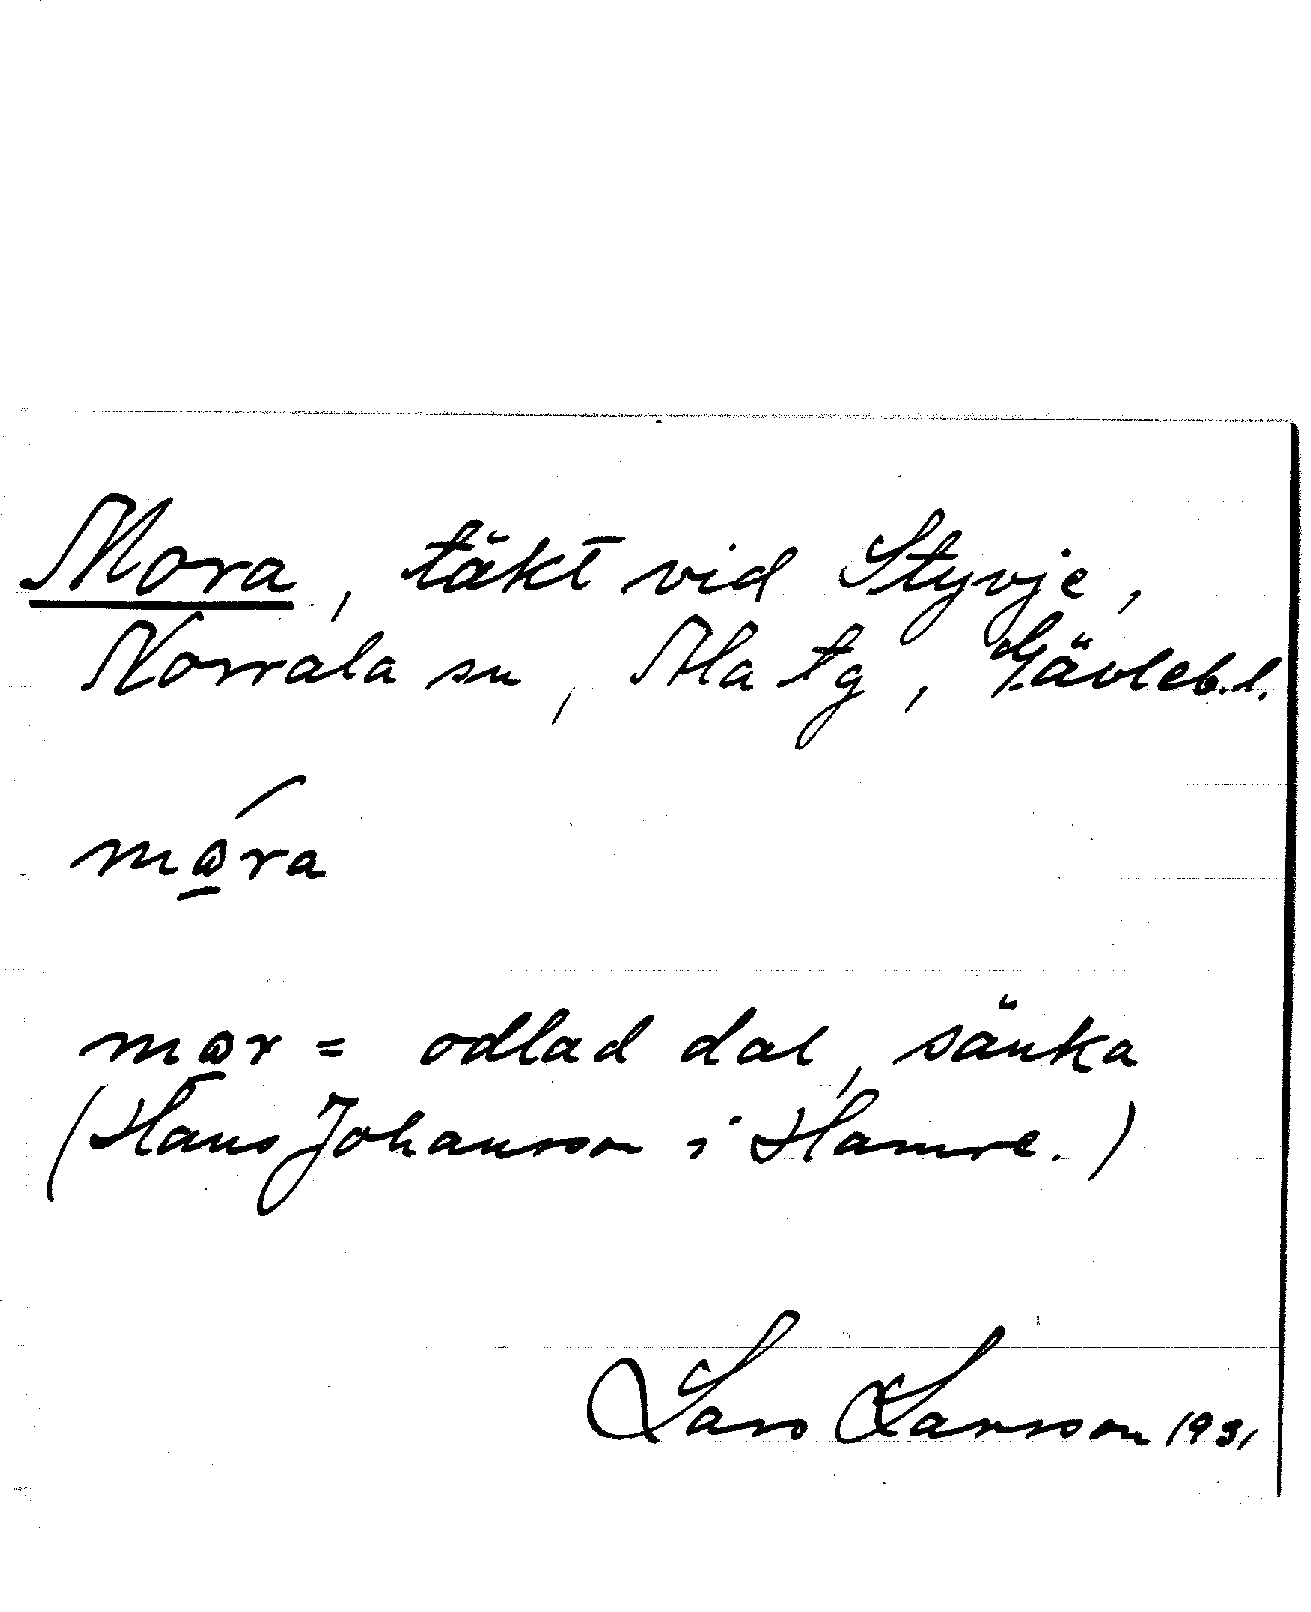 Mora, täkt vid Styvje,
Norrala sn, Ala tg, Gävleb.l.
mώ̲ra
mω̲r = odlad dal, sänka
(Hans Johansson i Hamre.)
Lars Larsson 1931